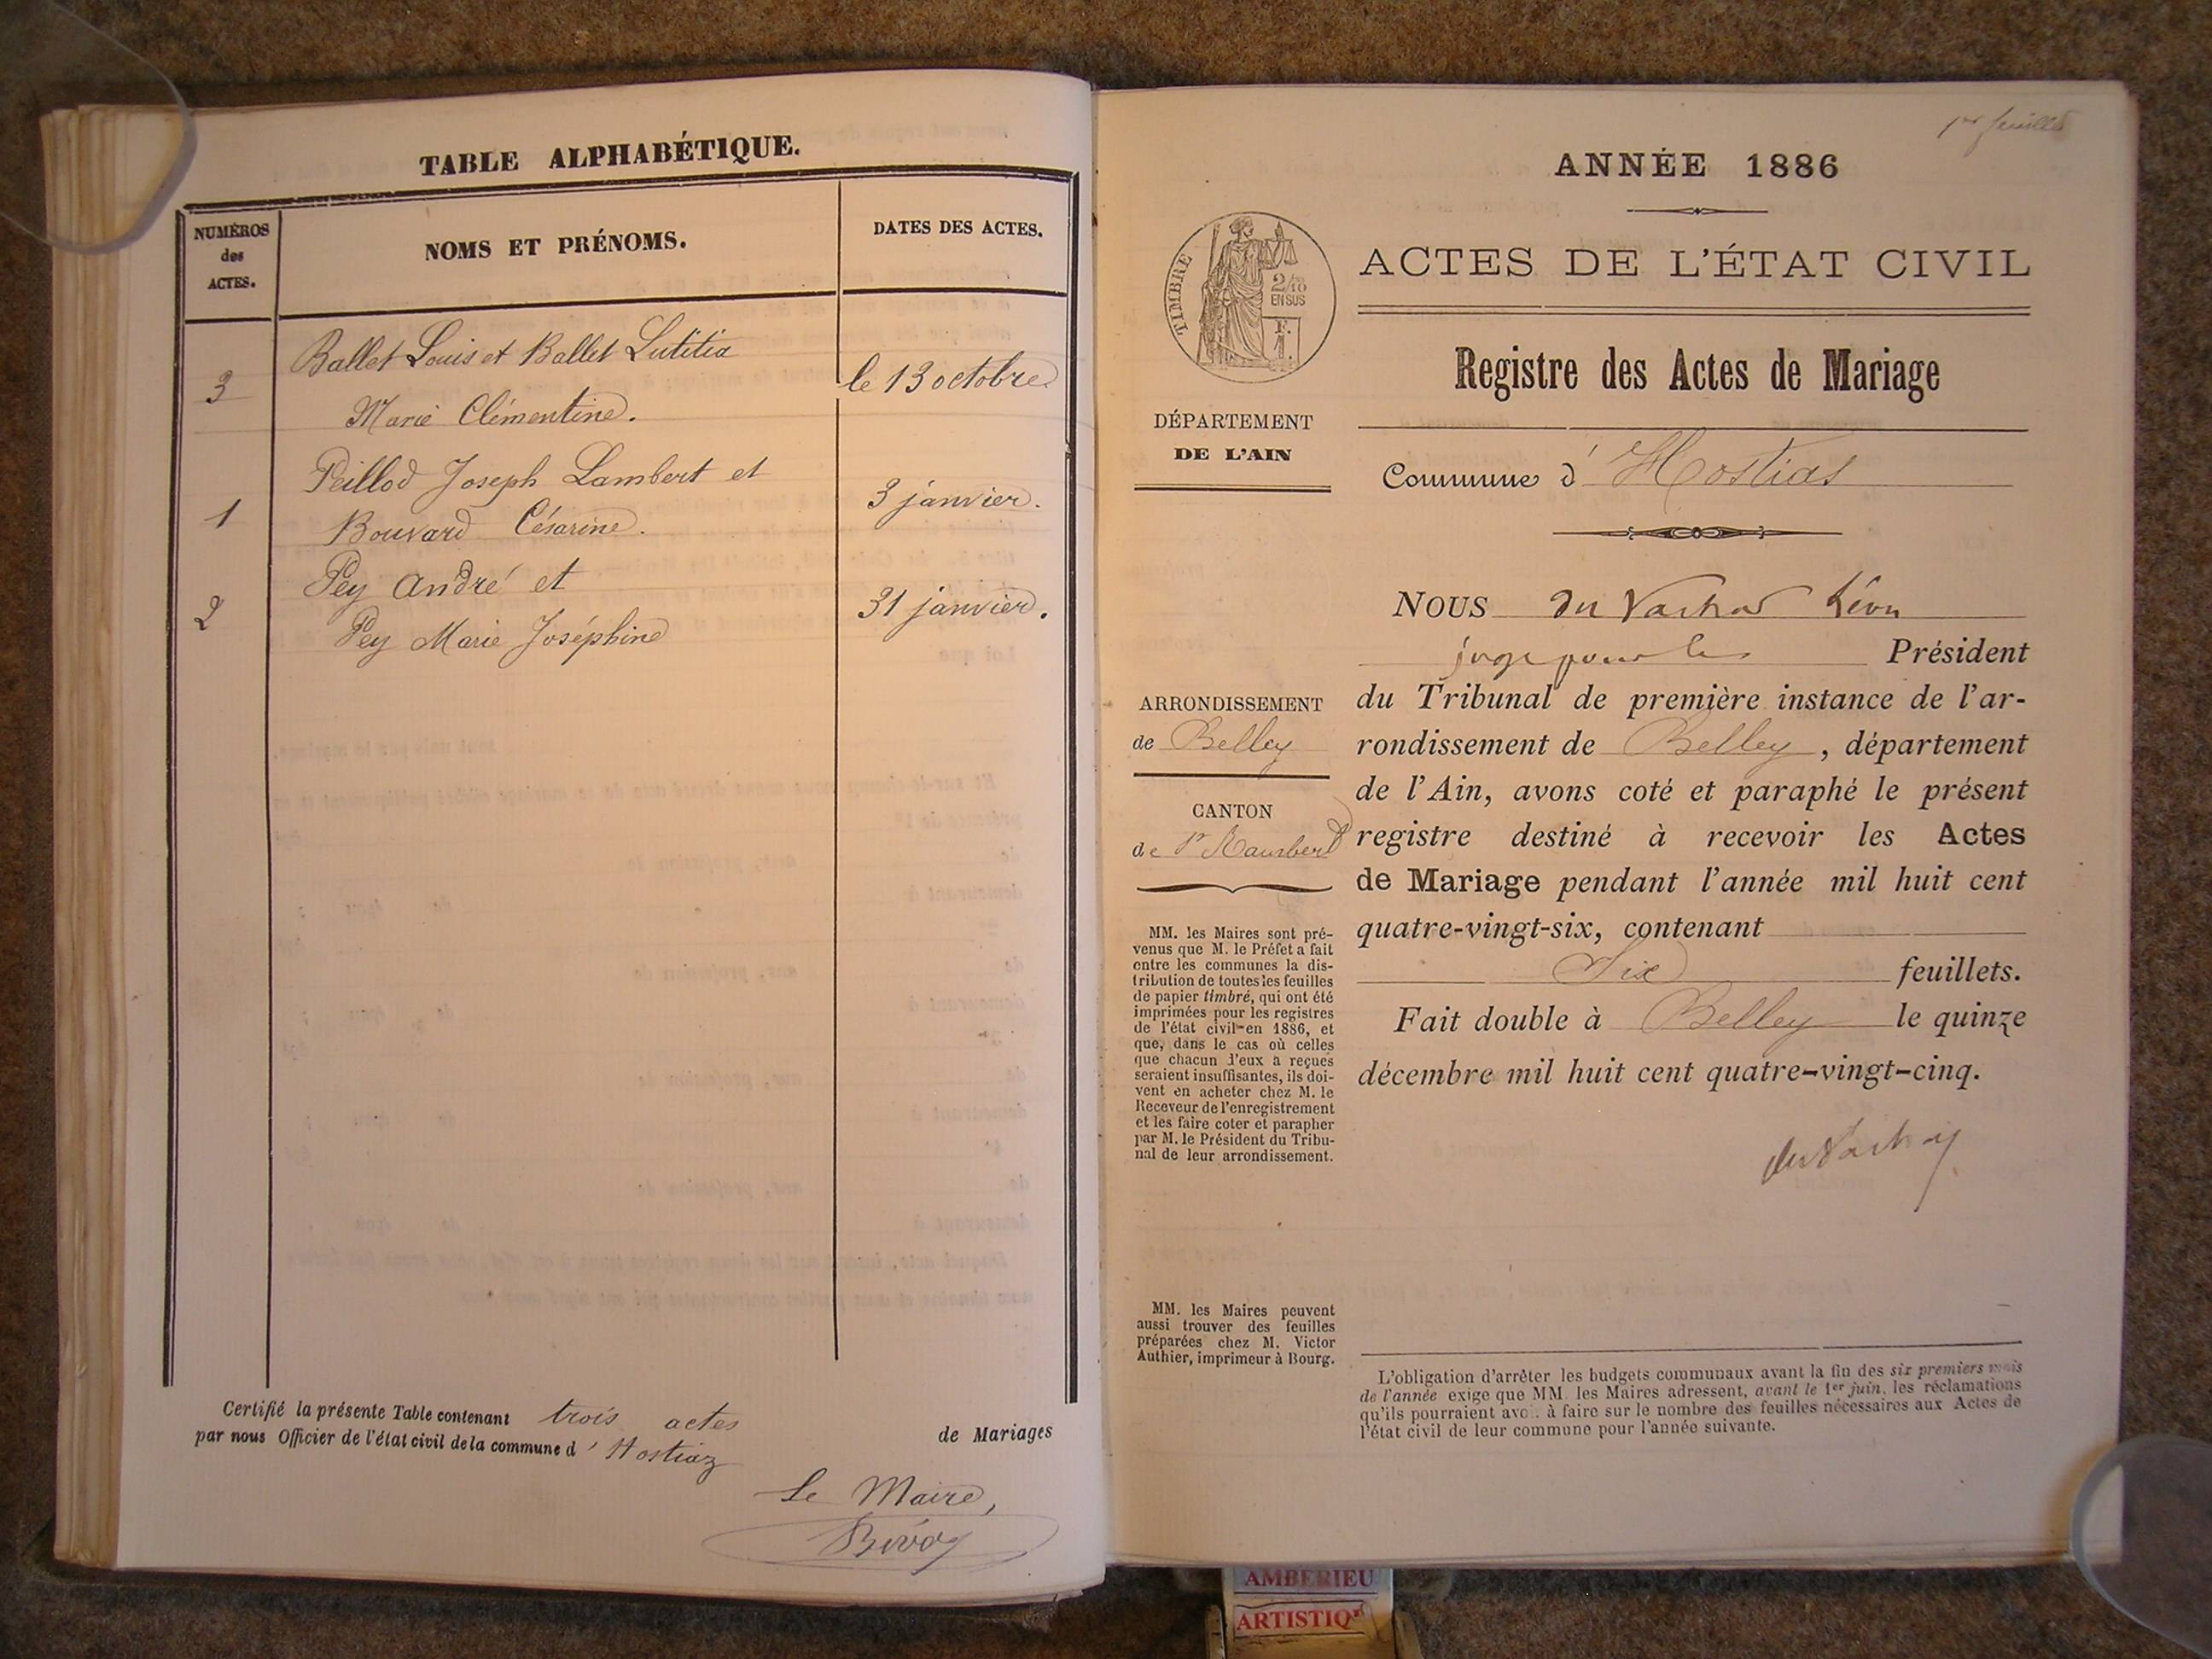 TABLE ALPHABÉTIQUE.
NUMÉROS
des
ACTES.
NOMS ET PRÉNOMS.
DATES DES ACTES.
Ballet Louis et Ballet Lutitia
3
le 13 octobre
Marie Clémentine.
Peillod Joseph Lambert et
1
3 janvier.
Bouvard Césarine.
Pey André et
2
31 janvier.
Pey Marie Joséphine
Certifié la présente Table contenant trois actes de Mariages
par nous Officier de l'état civil de la commune d'Hostiaz
Le Maire,
1er feuillet
ANNÉE 1886
TIMBRE
2/10
EN SUS
F.
1.
ACTES DE L'ÉTAT CIVIL
Registre des Actes de Mariage
DÉPARTEMENT
DE L'AIN
Commune d'Hostias
NOUS du Vachat Léon
juge pour le Président
du Tribunal de première instance de l'ar-
rondissement de Belley, département
de l'Ain, avons coté et paraphé le présent
registre destiné à recevoir les Actes
de Mariage pendant l'année mil huit cent
quatre-vingt-six, contenant
Six feuillets.
Fait double à Belley le quinze
décembre mil huit cent quatre-vingt-cinq.
du Vachat
ARRONDISSEMENT
de Belley
CANTON
de St Rambert
MM. les Maires sont pré-
venus que M. le Préfet a fait
entre les communes la dis-
tribution de toutes les feuilles
de papier timbré, qui ont été
imprimées pour les registres
de l'état civil en 1886, et
que, dans le cas où celles
que chacun d'eux a reçues
seraient insuffisantes, ils doi-
vent en acheter chez M. le
Receveur de l'enregistrement
et les faire coter et parapher
par M. le Président du Tribu-
nal de leur arrondissement.
MM. les Maires peuvent
aussi trouver des feuilles
préparées chez M. Victor
Authier, imprimeur à Bourg.
L'obligation d'arrêter les budgets communaux avant la fin des six premiers mois
de l'année exige que MM. les Maires adressent, avant le 1er juin, les réclamations
qu'ils pourraient avoir à faire sur le nombre des feuilles nécessaires aux Actes de
l'état civil de leur commune pour l'année suivante.
AMBERIEU
ARTISTIQ